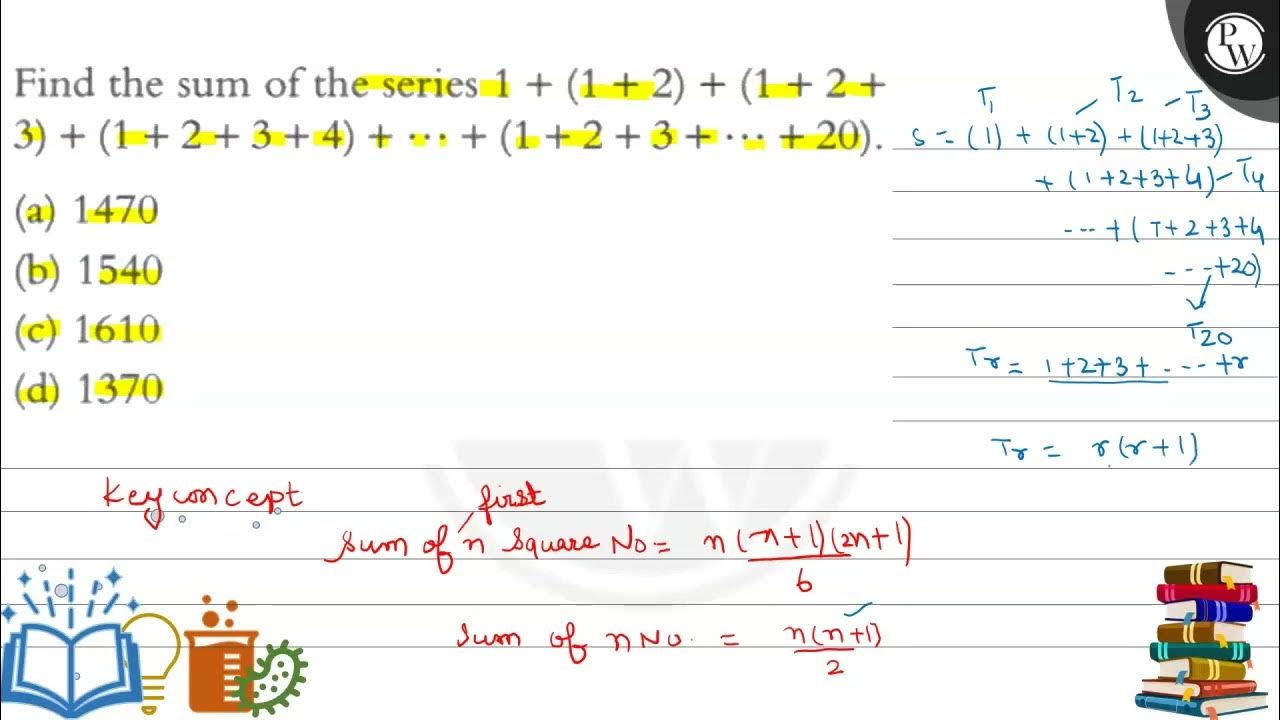 PW
Find the sum of the series 1 + (1 + 2) + (1 + 2 +
3) + (1 + 2 + 3 + 4) + ⋯ + (1 + 2 + 3 + ⋯ + 20).
(a) 1470
(b) 1540
(c) 1610
(d) 1370
T1 T2 T3
S = (1) + (1+2) + (1+2+3)
+ (1+2+3+4) - T4
--- + (1+2+3+4
---+20)
T20
Tr = 1+2+3+ ---- +r
Tr = r(r+1)
Key concept
first
Sum of n Square No = n(n+1)(2n+1)
6
Sum of n No. = n(n+1)
2